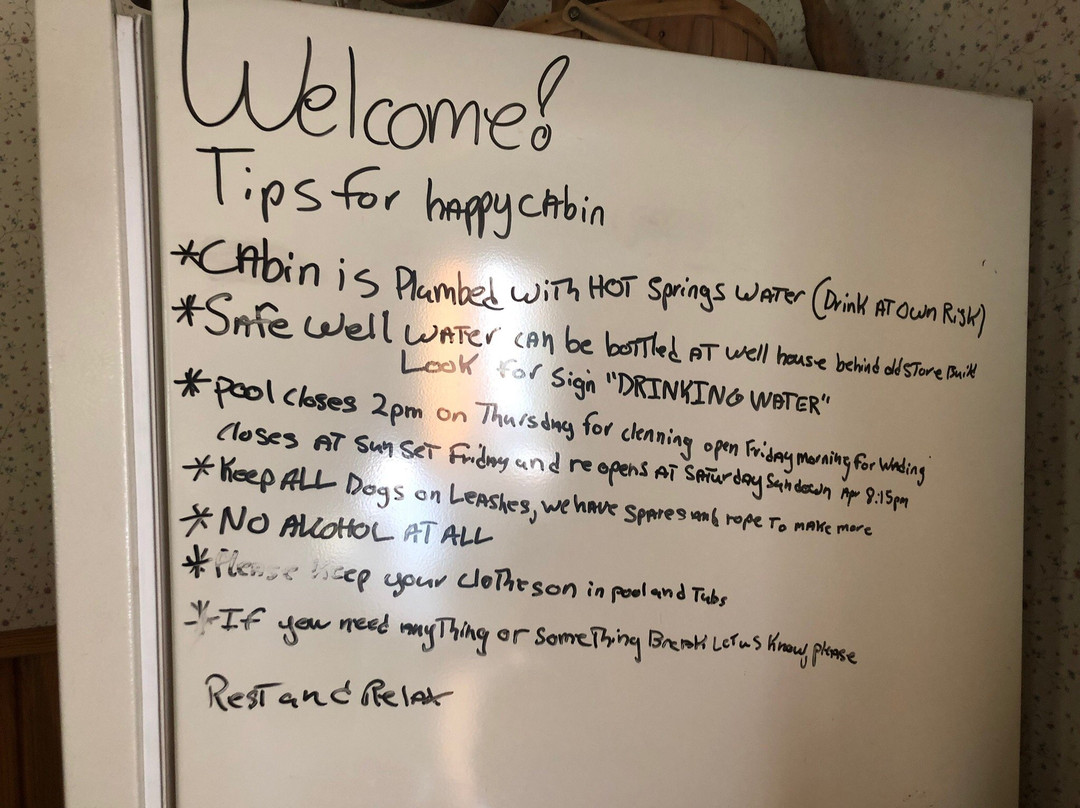 Welcome!
Tips for happy cabin
*Cabin is Plumbed with HOT Springs WATER (Drink AT Own Risk)
*Safe Well WATER can be bottled AT well house behind old store Build
Look for Sign "DRINKING WATER"
*pool closes 2pm on Thursday for clenning open Friday morning for Wading
closes AT Sun SeT Friday and reopens AT SATurday Sundown Apr 8:15pm
*Keep ALL Dogs on Leashes, we have spares and rope To make more
*NO ALCOHOL AT ALL
*Please Keep your clothes on in pool and Tubs
*If you need anyThing or SomeThing Break Let us Know, please
Rest and Relax